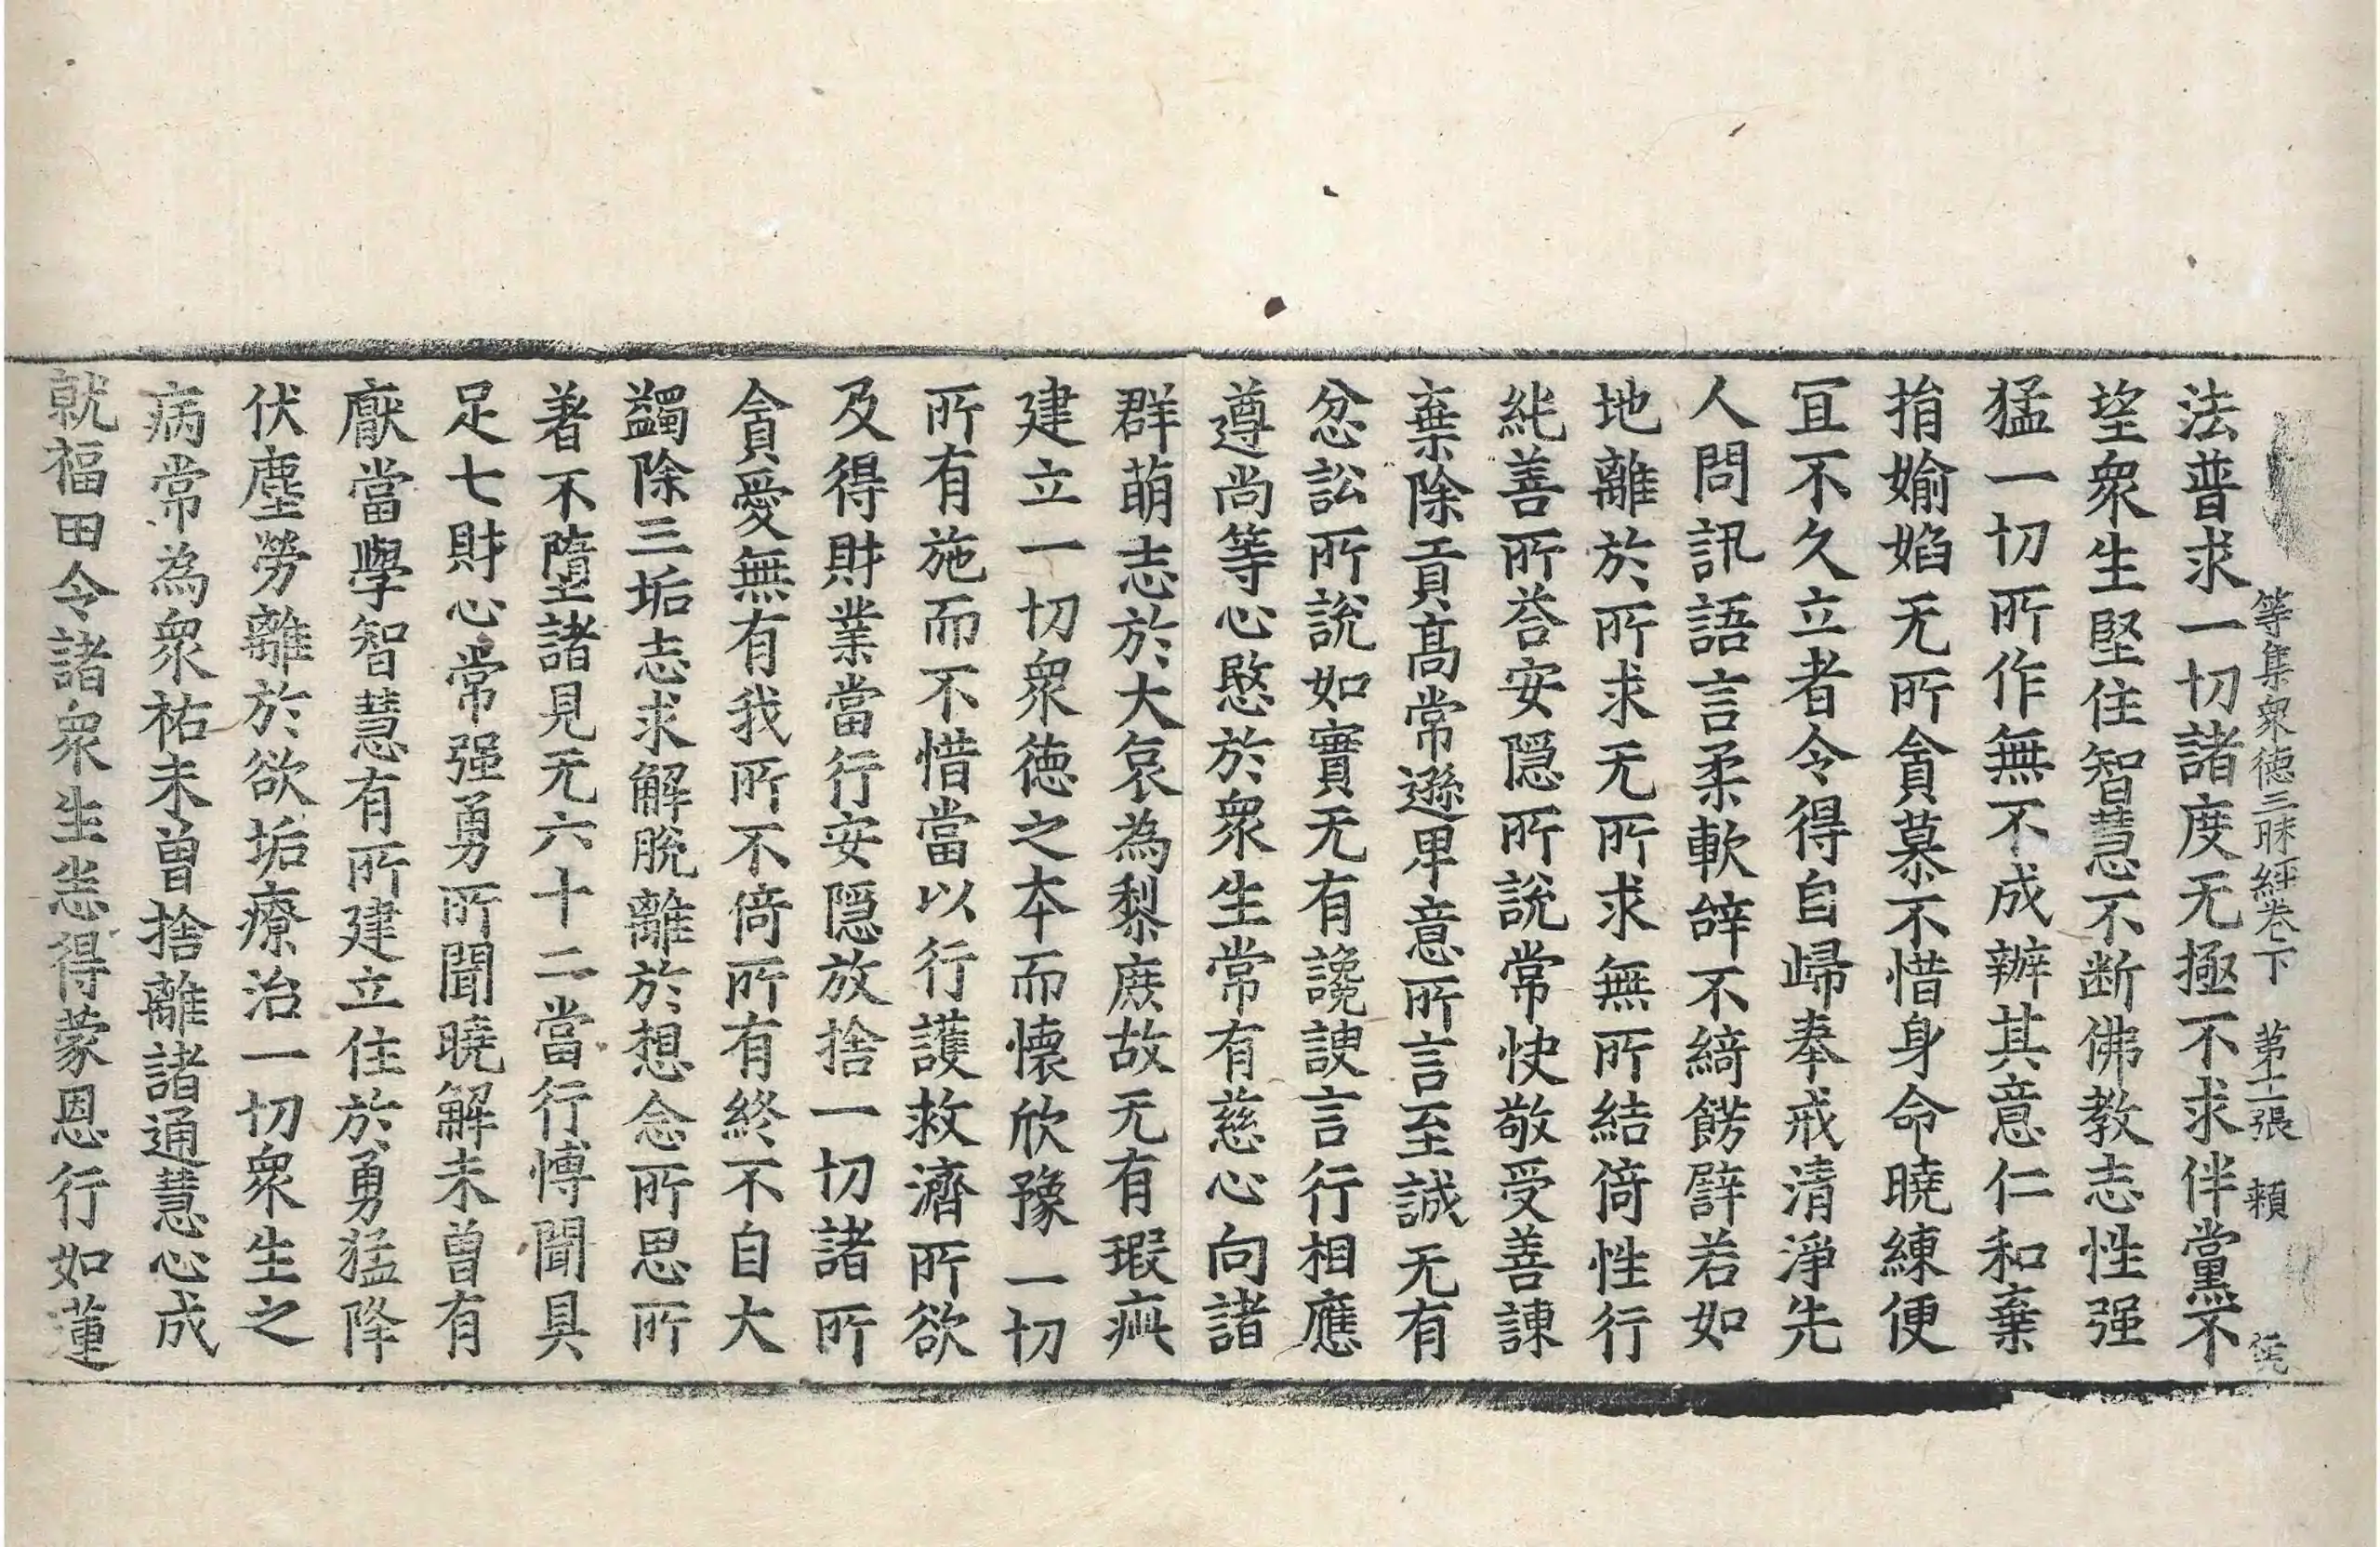 等集衆徳三昧經卷下　第十一張　頼
法普求一切諸度无極不求伴黨不
望衆生堅住智慧不断佛教志性强
猛一切所作無不成辦其意仁和棄
捐婾婸无所貪慕不惜身命曉練便
冝不久立者令得自歸奉戒清淨先
人問訊語言言柔軟辝不綺餝辟若如
地離於所求无所求無所結倚性行
純善所荅安隠所說常快敬受善諫
棄除貢髙常遜卑意所言至誠无有
忿訟所說如實无有讒諛言行相應
遵尚等心愍於衆生常有慈心向諸
群萌志於大哀為黎庶故无有瑕疵
建立一切衆徳之夲而懷欣豫一切
所有施而不惜當以行護救濟所欲
及得財業當行安隠放捨一切諸所
貪愛無有我所不倚所有終不自大
蠲除三垢志求解脫離於想念所思所
著不墮諸見无六十二當行博聞具
足七財心常强勇所聞曉解未曽有
厭當學智慧有所建立住於勇猛降
伏塵勞離於欲垢療治一切衆生之
病常為衆祐未曽捨離諸通慧心成
就福田令諸衆生恙得蒙恩行如蓮